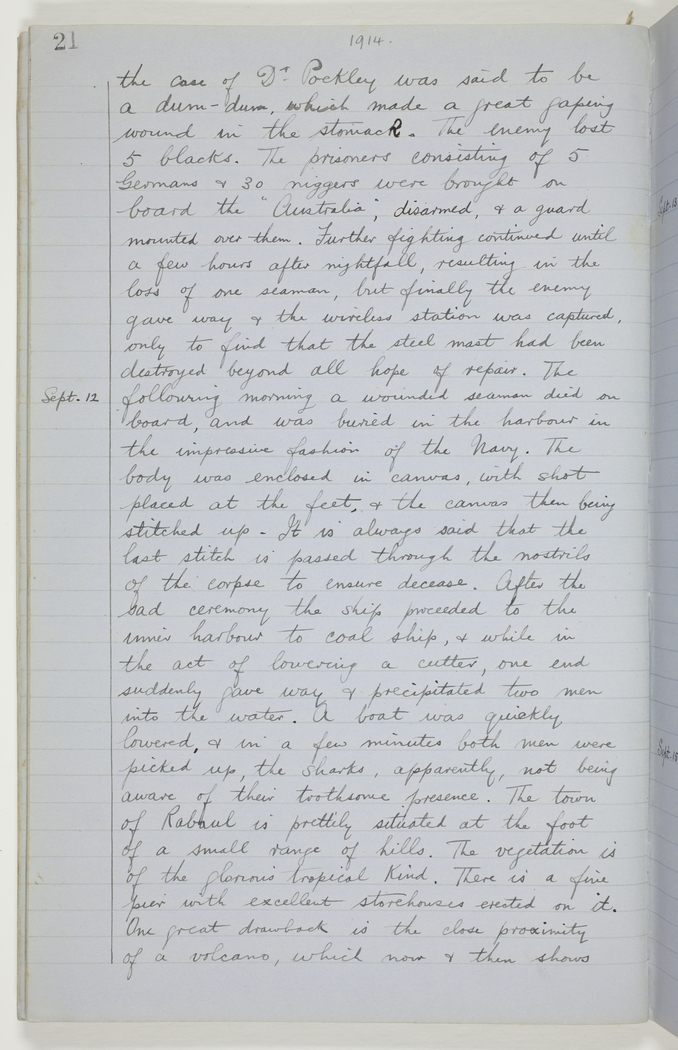 21
1914.
the case of Dr. Pockley was said to be
a dum-dum, which made a great gaping
wound in the stomack. The enemy lost
5 blacks. The prisoners consisting of 5
Germans & 30 niggers were brought on
board the "Australia", disarmed, & a guard
mounted over them. Further fighting continued until
a few hours after nightfall, resulting in the
loss of one seaman, but finally the enemy
gave way & the wireless station was captured,
only to find that the steel mast had been
destroyed beyond all hope of repair. The
Sept. 12
following morning a wounded seaman died on
board, and was buried in the harbour in
the impressive fashion of the Navy. The
body was enclosed in canvas, with shot
placed at the feet, & the canvas then being
stitched up - It is always said that the
last stitch is passed through the nostrils
of the corpse to ensure decease. After the
sad ceremony the ship proceeded to the
inner harbour to coal ship, & while in
the act of lowering a cutter, one end
suddenly gave way & precipitated two men
into the water. A boat was quickly
lowered, & in a few minutes both men were
picked up, the sharks, apparently, not being
aware of their toothsome presence. The town
of Rabaul is prettily situated at the foot
of a small range of hills. The vegetation is
of the glorious tropical kind. There is a fine
pier with excellent storehouses erected on it.
One great drawback is the close proximity
of a volcano, which now & then shows
Sept.
Sept.